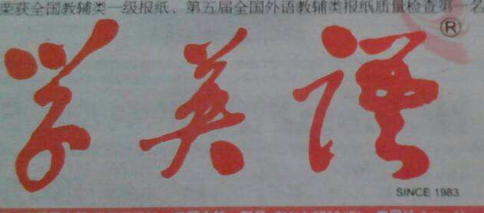 荣获全国教辅类一级报纸、第五届全国外语教辅类报纸质量检查第一名
®
学英语
SINCE 1983